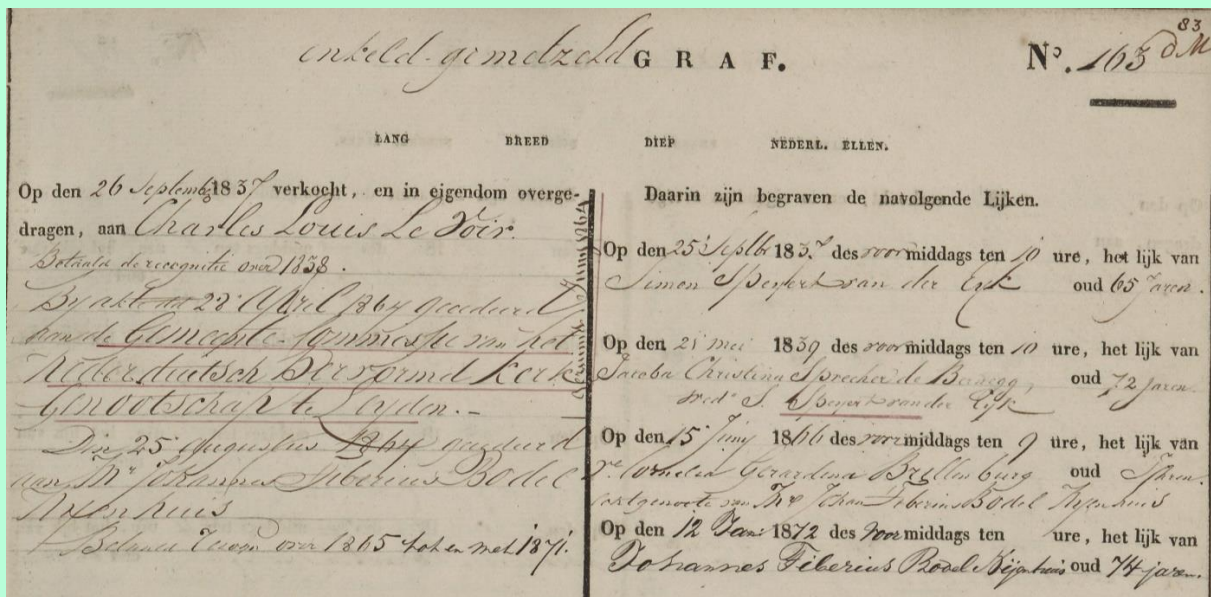 83
enkeld gemetzeld GRAF. No. 163 d M
LANG BREED DIEP NEDERL. ELLEN.
Op den 26 Septemb 1837 verkocht, en in eigendom overge-
dragen, aan Charles Louis Le Voir.
Betaald de recognitie over 1838.
By akte 28 April 1864 gecedeerd
aan de Gemeente Commissie van het
Nederduitsch Hervormd Kerk
Genootschap te Leyden.
Die 25 Augustus 1864 gecedeerd
aan Mr Johannes Tiberius Bodel
Nijenhuis
Betaald over 1865 tot en met 1871.
Daarin zijn begraven de navolgende Lijken.
Op den 25 Septbr 1837 des voormiddags ten 10 ure, het lijk van
Simon Speyert van der Eyk oud 65 Jaren.
Op den 21 mei 1839 des voormiddags ten 10 ure, het lijk van
Jacoba Christina Sprecher de Bernegg oud 72 jaren
wed. S. Speyert van der Eyk
Op den 15 Juny 1866 des voormiddags ten 9 ure, het lijk van
Cornelia Gerardina Brillenburg oud Jaren
echtgenoote van Mr Johan Tiberius Bodel Nyenhuis
Op den 12 Jan: 1872 des voormiddags ten ure, het lijk van
Johannes Tiberius Bodel Nijenhuis oud 74 jaren.